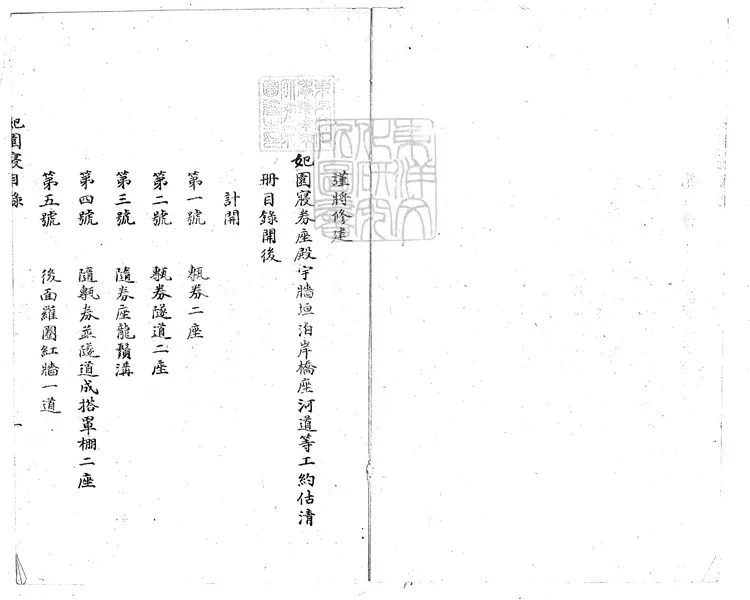 謹將修建
妃園寢券座殿宇牆垣泊岸橋座河道等工約估清
冊目錄開後
計開
第一號 甎券二座
第二號 甎券隧道二座
第三號 隨券座龍鬚溝
第四號 隨甎券並隧道成搭罩棚二座
第五號 後面羅圈紅牆一道
妃園寢目錄 一
東洋文化研究所圖書